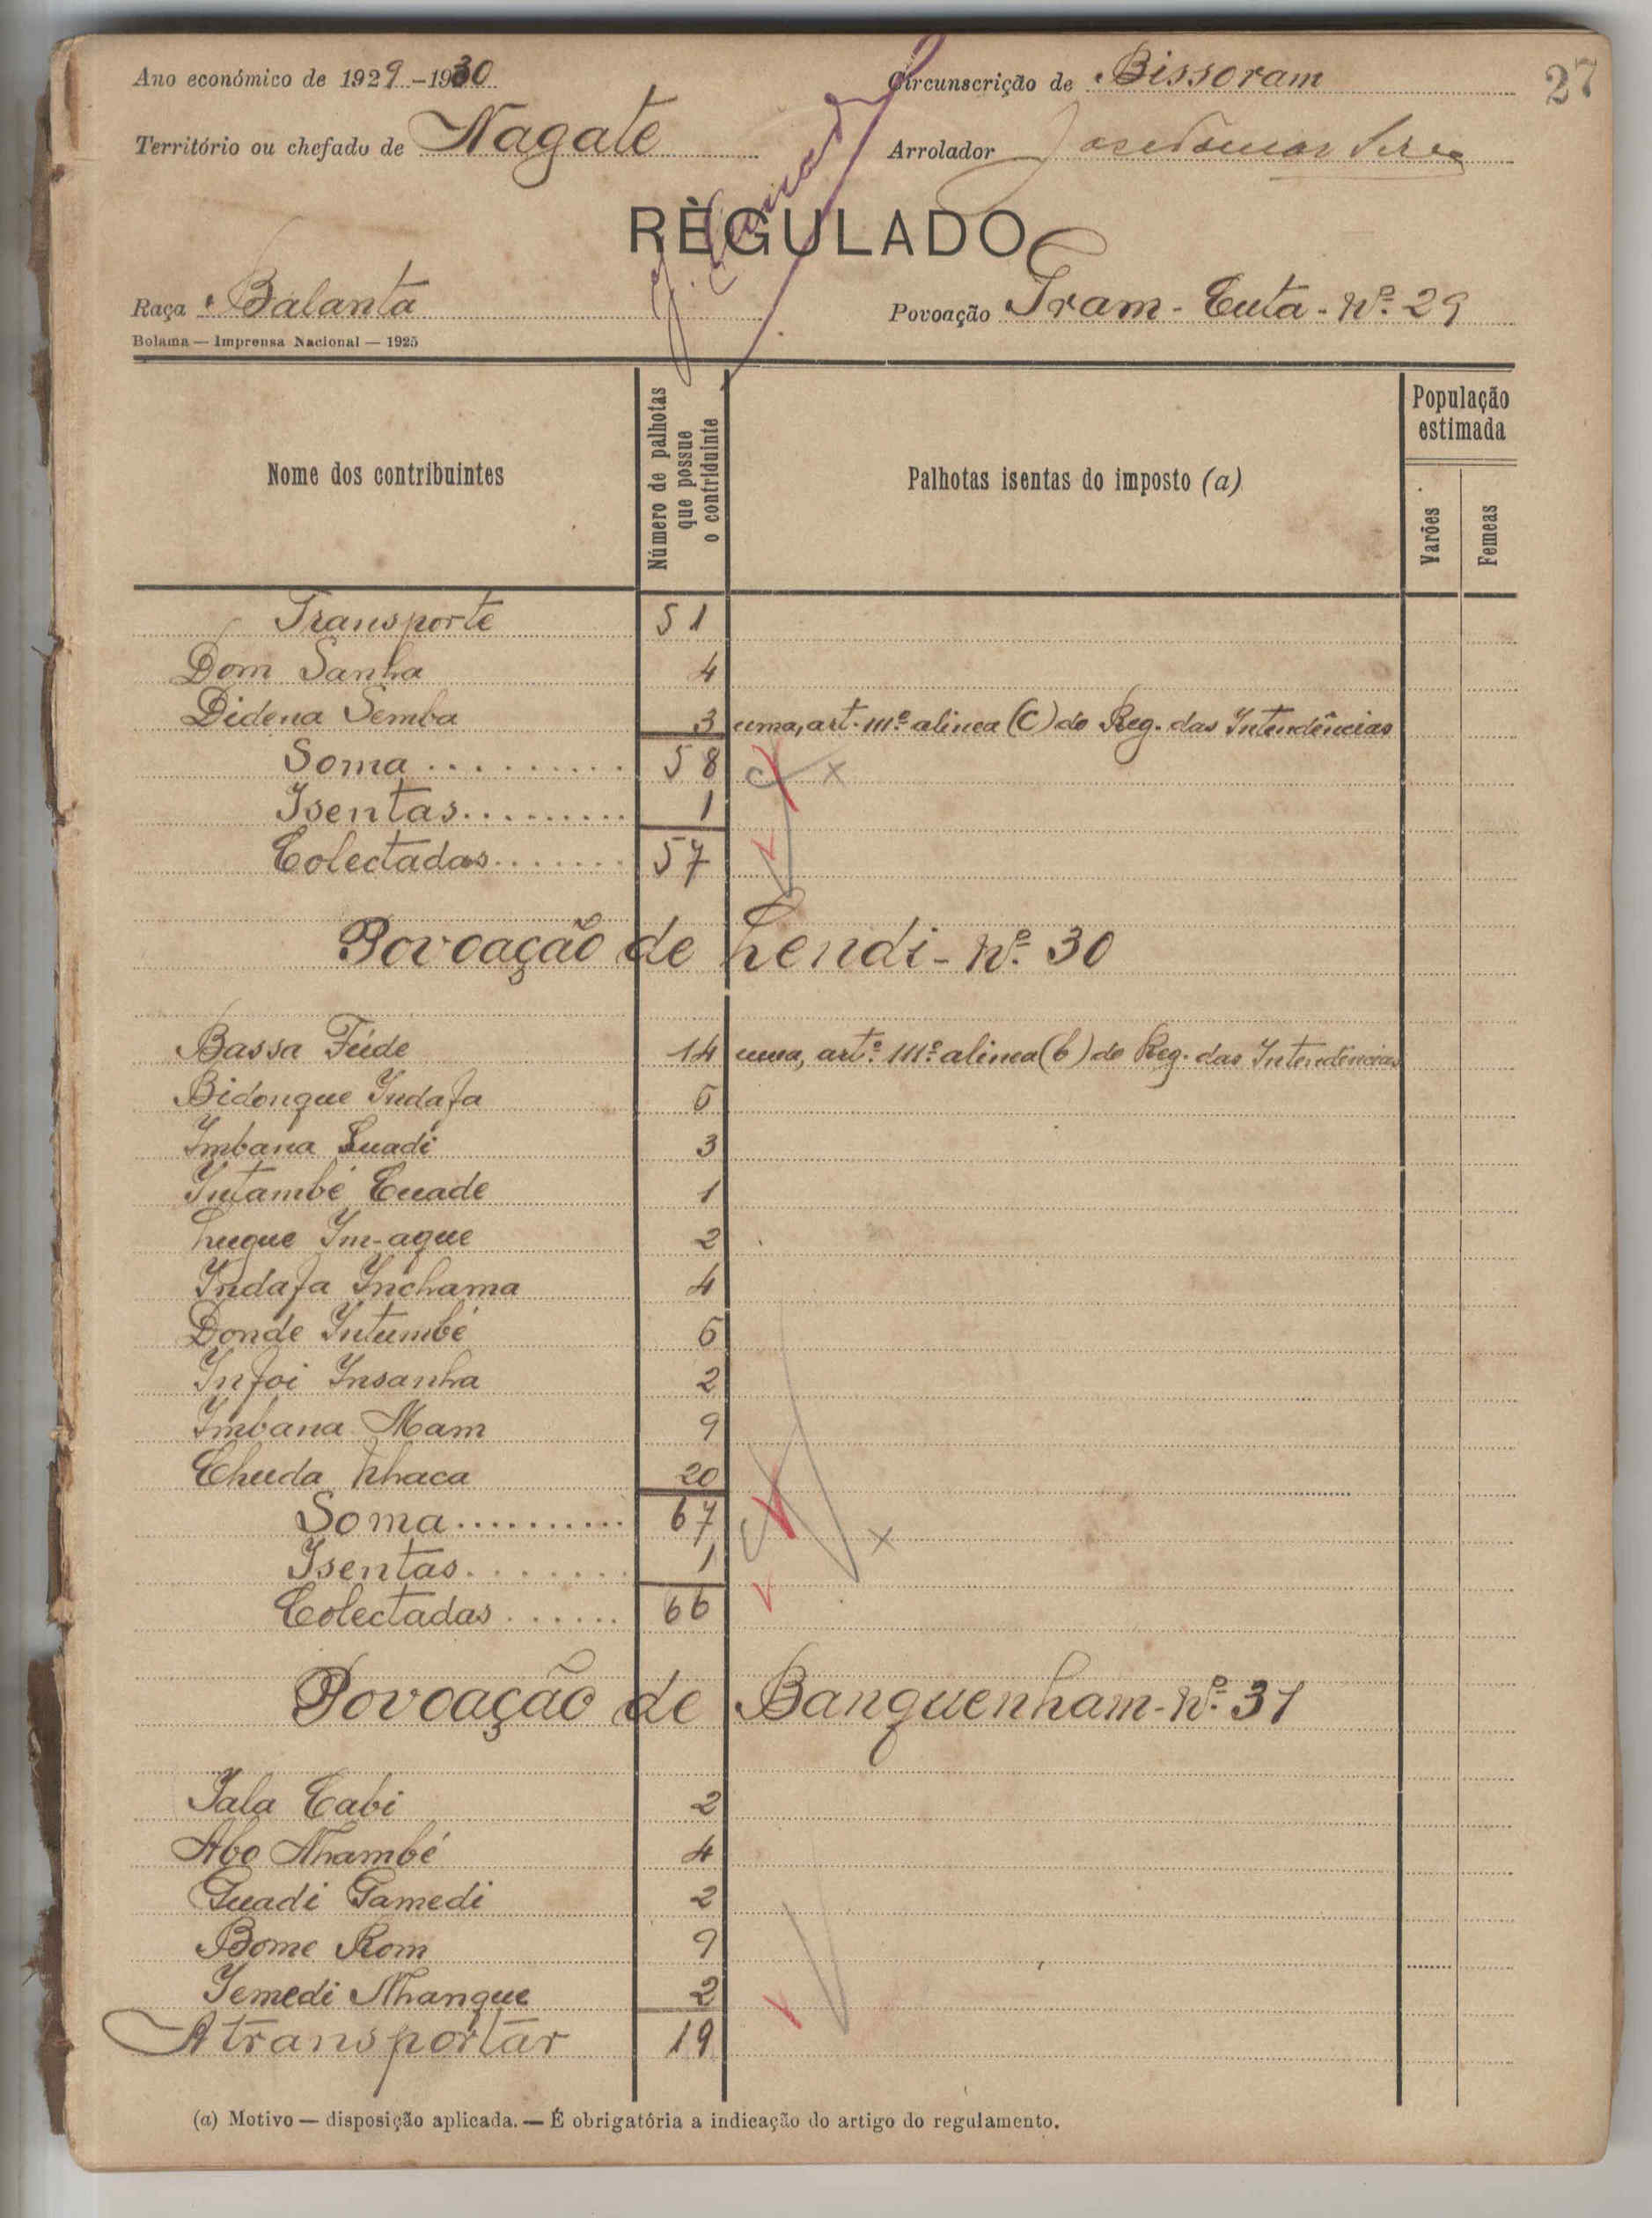 27
Ano económico de 1929-1930 Circunscrição de Bissoram
Território ou chefado de Nagate Arrolador
RÈGULADO
Raça Balanta Povoação Tram-Cuta-Nº 29
Bolama — Imprensa Nacional — 1925
Nome dos contribuintes
Número de palhotas que possue o contriduinte
Palhotas isentas do imposto (a)
População estimada
Varões
Femeas
Transporte 51
Dom Sanha 4
Didena Semba 3 uma, art. 111º alinea (C) do Reg. das Intendências
Soma .......... 58
Isentas......... 1
Colectadas....... 57
Povoação de Lendi-Nº 30
Bassa Fúde 14 uma, artº 111º alinea (b) do Reg. das Intendências
Bidonque Indafa 6
Imbana Luadi 3
Intambé Cuade 1
Luque Im-aque 2
Indafa Inchama 4
Donde Intumbé 6
Infoi Insanha 2
Imbana Mam 9
Chuda Nhaca 20
Soma .......... 67
Isentas........ 1
Colectadas ...... 66
Povoação de Banquenham-Nº 31
Iala Cabi 2
Abo Nhambé 4
Guadi Gamedi 2
Bome Rom 9
Iemedi Nhanque 2
A transportar 19
(a) Motivo — disposição aplicada. — É obrigatória a indicação do artigo do regulamento.